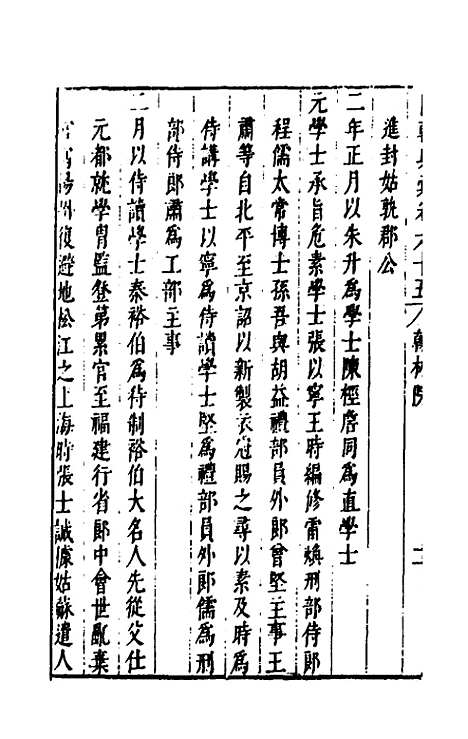 國朝典彙卷六十五 翰林院 二
進封姑孰郡公
二年正月以朱升為學士陳樫詹同為直學士
元學士承旨危素學士張以寧王時編修雷煥刑部侍郎
程儒太常博士孫吾與胡益禮部員外郎曾堅主事王
肅等自北平至京詔以新製衣冠賜之尋以素及時為
侍講學士以寧為侍讀學士堅為禮部員外郎儒為刑
部侍郎肅為工部主事
二月以侍讀學士秦裕伯為待制裕伯大名人先從父仕
元都就學胄監登第累官至福建行省郎中會世亂棄
官寓揚州復避地松江之上海時張士誠據姑蘇遣人